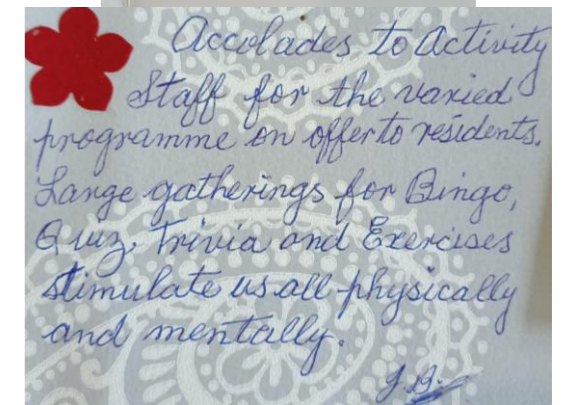 Accolades to Activity
Staff for the varied
programme on offer to residents.
Large gatherings for Bingo,
Quiz, Trivia and Exercises
stimulate us all physically
and mentally.
J.B.